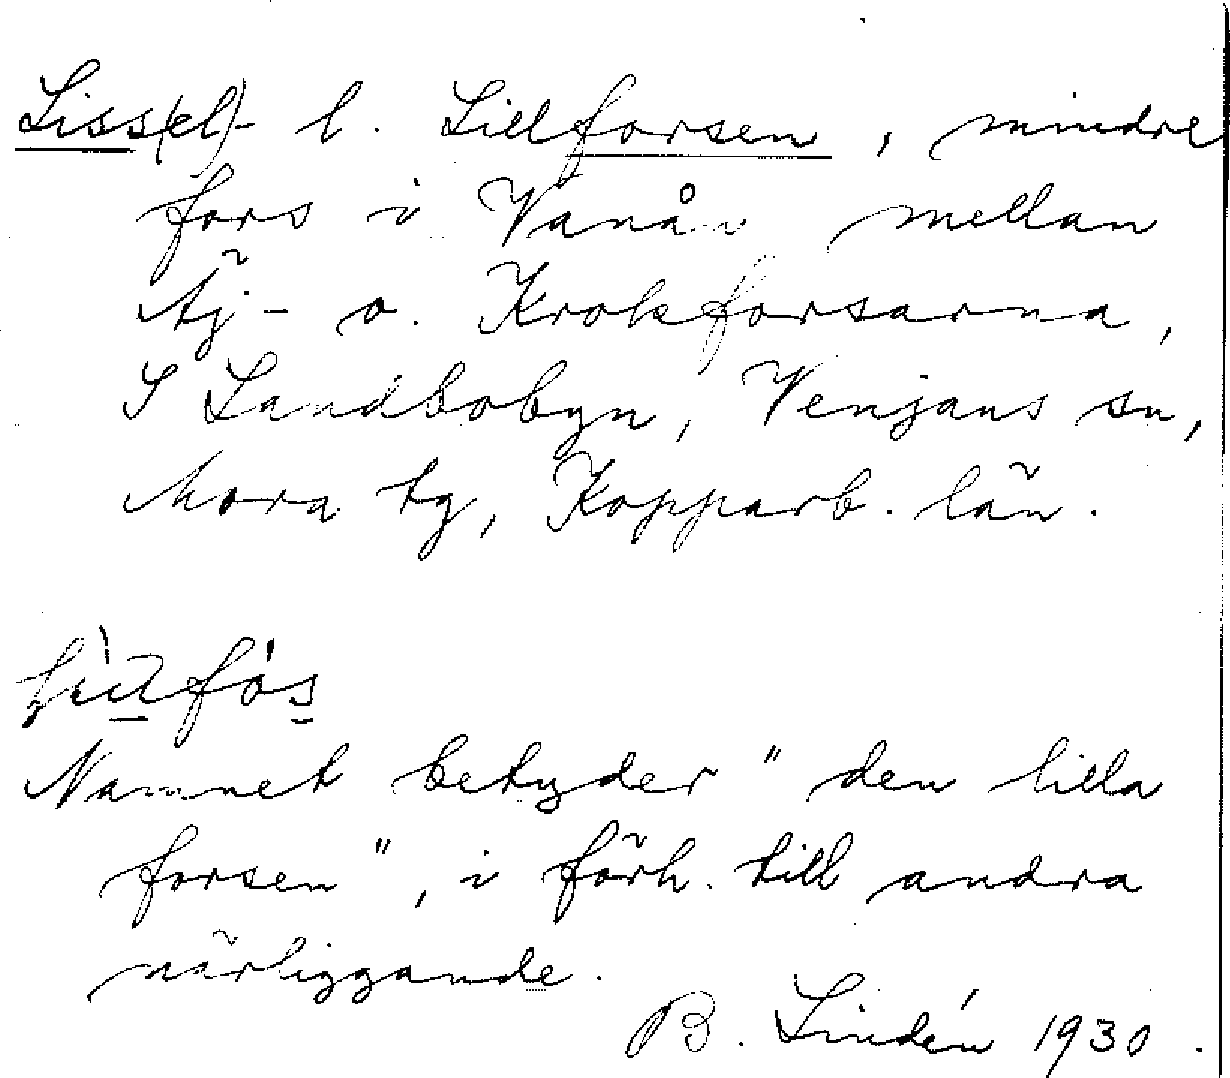 Liss(el)- l. Lillforsen, mindre
fors i Vanån mellan
Äj- o. Krokforsarna,
S Landbobyn, Venjans sn,
Mora tg, Kopparb. län.
Namnet betyder "den lilla
forsen", i förh. till andra
närliggande.
B. Lindén 1930.